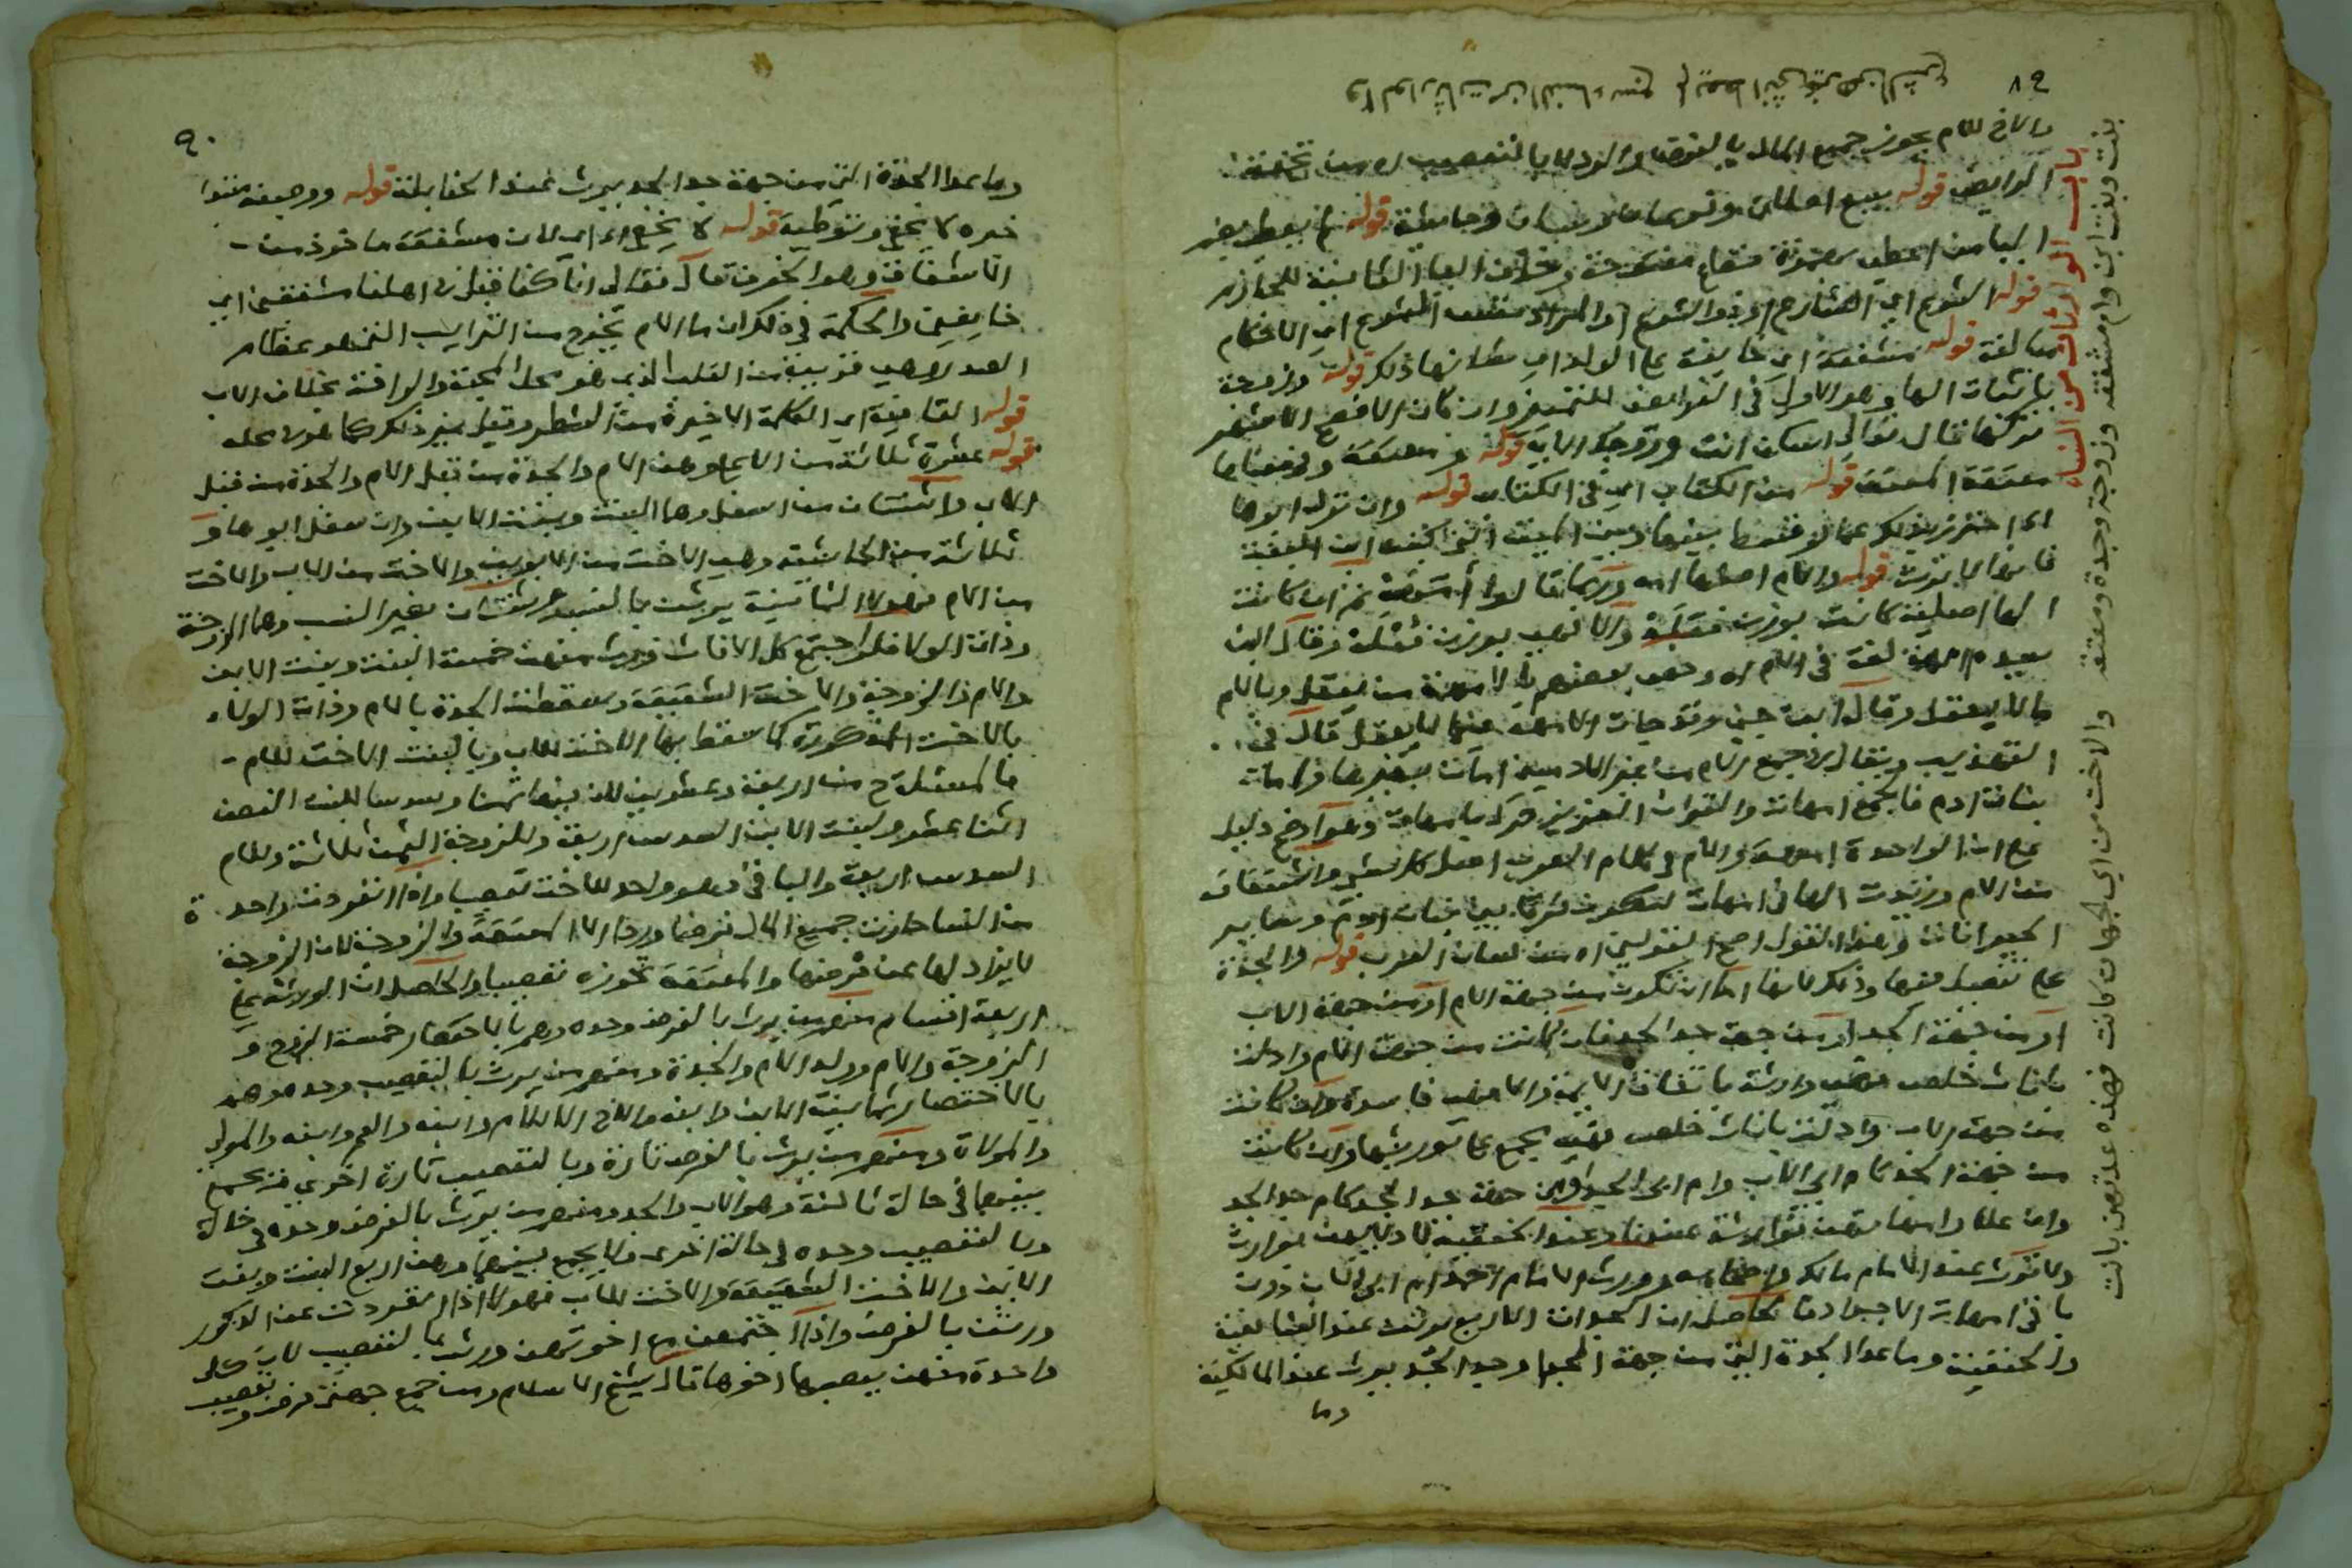 ٨٩
والوارثات من النساء سبع لم يعط انثى غيرهن الشرع
والاخ للام يحوز جميع المال بالفرض والرد لا بالتعصيب اه من تحفة
الرايض قوله سبع اجمالا
اليا من اعطى
قوله الشرع اي الشارع او ذو الشرع او المراد الاحكام
مبالغة قوله مشفقة اي خايفة على الولد اي ذلك قوله وزوجة
باثبات الها وهو الاولى في الفرايض للتمييز وان كان الافصح الاشهر
تركها قال تعالى اسكن انت وزوجك الاية قوله ومعتقة
معتقة المعتق قوله من الكتاب اي في الكتاب قوله
فانها لا ترث قوله والام اصلها
الها اصلية كانت بوزن والا فهي بوزن وقال ابن
سيده الامهة لغة في الام اه وخص بعضهم الامهة من يعقل وبالام
ما لا يعقل وقال ابن جني وقد جات الامهة فيما لا يعقل قال في
التهذيب ويقال في جمع الام من غير الادميين امات بغير ها واما
بنات ادم فالجمع امهات والقران العزيز نزل بامهات وهو اوضح دليل
على ان الواحدة امهة والام في كلام العرب اصل كل شي واشتقاقه
من الام وزيدت الها في امهات لتكون فرقا بين بنات ادم وساير
الحيوانات وهذا القول اصح القولين اه من لسان العرب قوله والجدة
على تفصيل فيها وذلك لانها اما ان تكون من جهة الام او من جهة الاب
او من جهة الجد او من جهة جد الجد فان كانت من جهة الام وادلت
باناث خلص فهي وارثة باتفاق الايمة والا فهي فاسدة وان كانت
من جهة الاب وادلت باناث خلص فهي مجمع على توريثها وان كانت
من جهة الجد كام ابي الاب وام ابي الجد او من جهة جد الجد كام جد الجد
وان علا وامهاتهن فوارثة عندنا وعند الحنفية
ولا ترث عند الامام مالك واصحابه وورث الامام احمد ام ابي الاب دون
باقي امهات الاجداد فالحاصل ان الجدات الاربع يرثن عند الشافعية
والحنفية وما عدا الجدة التي من جهة الجد وجد الجد يرث عند المالكية
وما
باب الوارثات من النساء
بنت وبنت ابن وام مشفقه وزوجة وجدة ومعتقه
والاخت من اي الجهات كانت فهذه عدتهن بانت
٩٠
وما عدا الجدة التي من جهة جد الجد يرث عند الحنابلة قوله
خبره لا يخفى قوله لا يخفى لان مشفقة ماخوذ من
الاشفاق وهو الخوف قال تعالى انا كنا قبل في اهلنا مشفقين اي
خايفين والحكمة في ذلك ان ما الام يخرج من الترايب التي هو عظام
الصدر وهي قريبة من القلب الذي هو محل المحبة والرافة بخلاف الاب
قوله القافية اي الكلمة الاخيرة من الشطر وقيل غير ذلك كما هو في محله
قوله عشرة ثلاثة من الاعلى وهن الام والجدة من قبل الام والجدة من قبل
الاب واثنتان من اسفل وهما البنت وبنت الابن وان سفل ابوها و
ثلاثة من الحاشية وهي الاخت من الابوين والاخت من الاب والاخت
من الام فهولا الثمانية يرثن بالنسب واثنتان بغير النسب وهما الزوجة
وذات الولا فلو اجتمع كل الاناث ورث منهن خمسة البنت وبنت الابن
والام والزوجة والاخت الشقيقة وسقطت الجدة بالام وذات الولاء
بالاخت المذكورة كما سقط بها الاخت للاب وبالبنت الاخت للام
فالمسئلة ح من اربعة وعشرين لان فيها ثمنا وسدسا للبنت النصف
اثنا عشر ولبنت الابن السدس اربعة وللزوجة الثمن ثلاثة وللام
السدس اربعة والباقي وهو واحد للاخت تعصيبا واذا انفردت واحدة
من النسا حازت جميع المال فرضا وردا الا المعتقة والزوجة لان الزوجة
لا يزاد لها عن فرضها والمعتقة تحوزه تعصيبا والحاصل ان الورثة على
اربعة اقسام منهم من يرث بالفرض وحده وهم بالاختصار خمسة الزوج و
الزوجة والام وولد الام والجدة ومنهم من يرث بالتعصيب وحده وهم
بالاختصار ثمانية الابن وابنه والاخ لا للام وابنه والعم وابنه والمولى
والمولاة ومنهم من يرث بالفرض تارة وبالتعصيب تارة اخرى ويجمع
بينهما في حالة ثالثة وهو الاب والجد ومنهم من يرث بالفرض وحده في حالة
وبالتعصيب وحده في حالة اخرى ولا يجمع بينهما وهن اربع البنت وبنت
الابن والاخت الشقيقة والاخت للاب فهولا اذا انفردت عن الذكور
ورثت بالفرض واذا اجتمعن مع اخوتهن ورثن بالتعصيب لان كل
واحدة منهن يعصبها اخوها قال شيخ الاسلام ومن جمع جهتي فرض وتعصيب